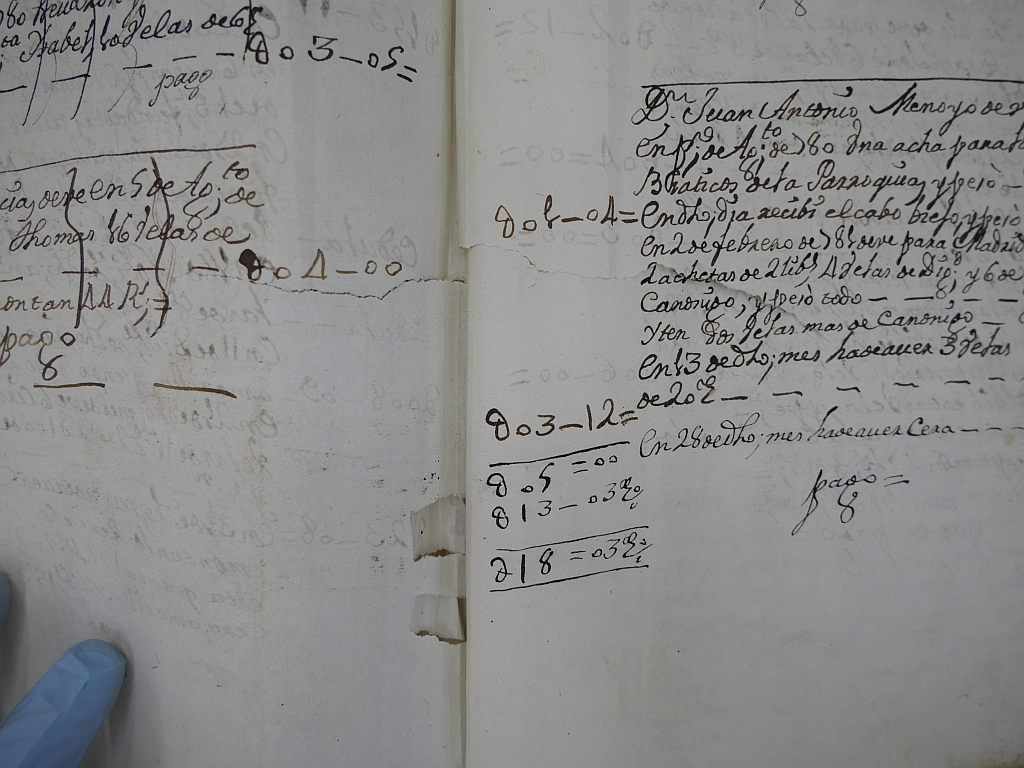 Ysabel 10 Velas de 6 S
— — — — 803 — 05 =
pago
cia, deve en 5 de Ag.to de
Thomas 16 Velas de
— — — — 804 — 00
Contan 44 R.s
pago
8
D.n Juan Antonio Menoyo de
en de Ag.to de 780 Una acha para
Biaticos de la Parroquia, y peso —
801 — 04 = en dho; dia recibi el cabo biejo, y peso
en 2 de febrero de 781 deve para Madrid
2 achetas de 2 lib.s 4 Velas de y 6 de
Canonigo, y peso todo — — — —
Yten dos Velas mas de Canonigo —
en 13 de dho; mes haveaver 3 Velas
803 — 12 = de 20 — — — — — —
en 28 de dho; mes haveaver Cera — — —
805 = 00
813 — 03
pago =
8
218 = 03